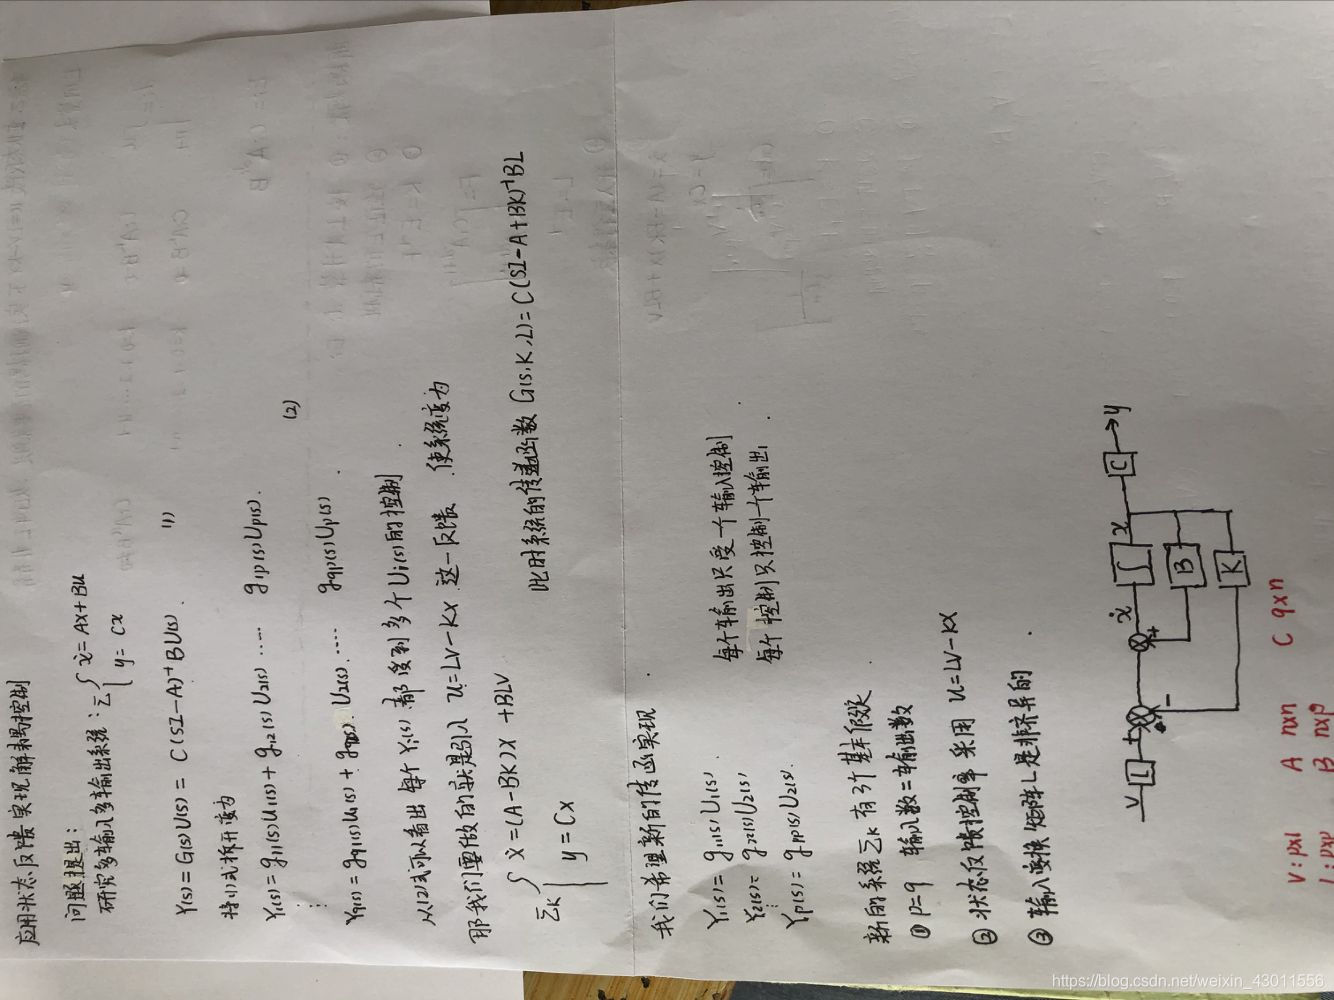 应用状态反馈实现解耦控制
问题提出：
研究多输入多输出系统：Σ { ẋ=Ax+Bu
y=Cx
Y(s)=G(s)U(s)=C(SI-A)⁻¹BU(s). (1)
将(1)式拆开变为
Y₁(s)=g₁₁(s)U₁(s)+g₁₂(s)U₂(s)····· g₁p(s)Up(s). (2)
⋮
Yq(s)=gq₁(s)U₁(s)+gq₂(s)·U₂(s)····· gqp(s)Up(s).
从(2)式可以看出 每个Yi(s)都受到多个Ui(s)的控制.
那我们要做的就是引入 u=LV-KX 这一反馈.使系统变为
Σk { ẋ=(A-BK)X+BLV
y=Cx
此时系统的传递函数 G(s,K,L)=C(SI-A+BK)⁻¹BL
我们希望新的传函实现
Y₁(s)=g₁₁(s)U₁(s).
Y₂(s)=g₂₂(s)U₂(s)
⋮
Yp(s)=gpp(s)U₂(s).
每个输出只受一个输入控制
每个控制只控制一个输出.
新的系统Σk有3个基本假设.
① p=q 输入数=输出数
② 状态反馈控制率采用 u=LV-KX
③ 输入变换矩阵L是非奇异的.
V L + - ẋ + ∫ x C y
B
K
V:px1 A nxn C qxn
L:pxp B nxp
https://blog.csdn.net/weixin_43011556